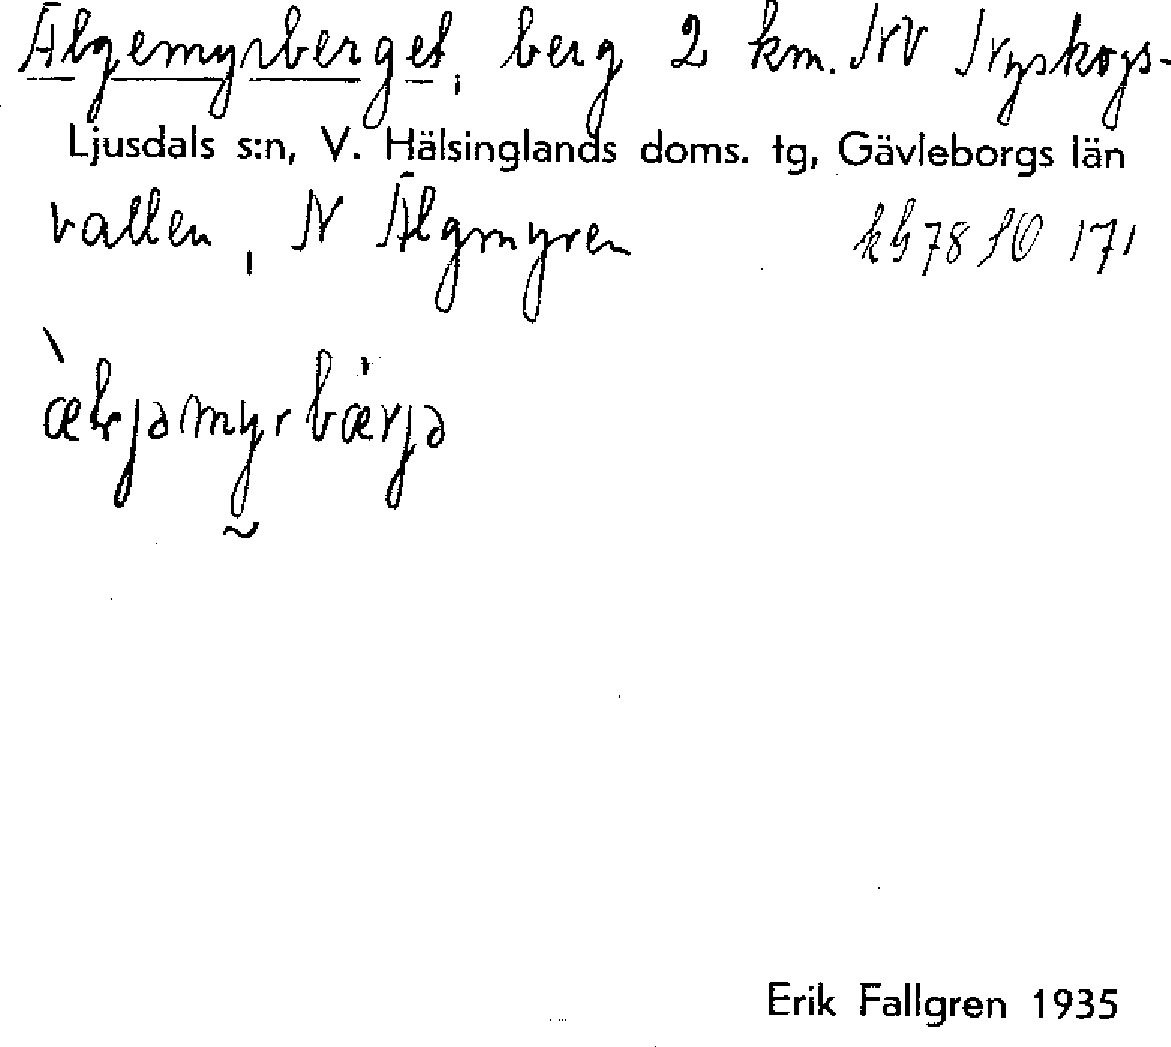 Älgemyrberget, berg 2 km. NV Nyskogs-
Ljusdals s:n, V. Hälsinglands doms. tg, Gävleborgs län
vallen, N Älgmyren kb 78 SO 171
Erik Fallgren 1935